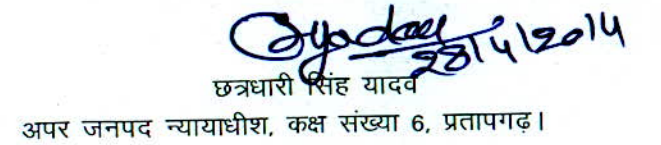 28/4/2014
छत्रधारी सिंह यादव
अपर जनपद न्यायाधीश, कक्ष संख्या 6, प्रतापगढ़।